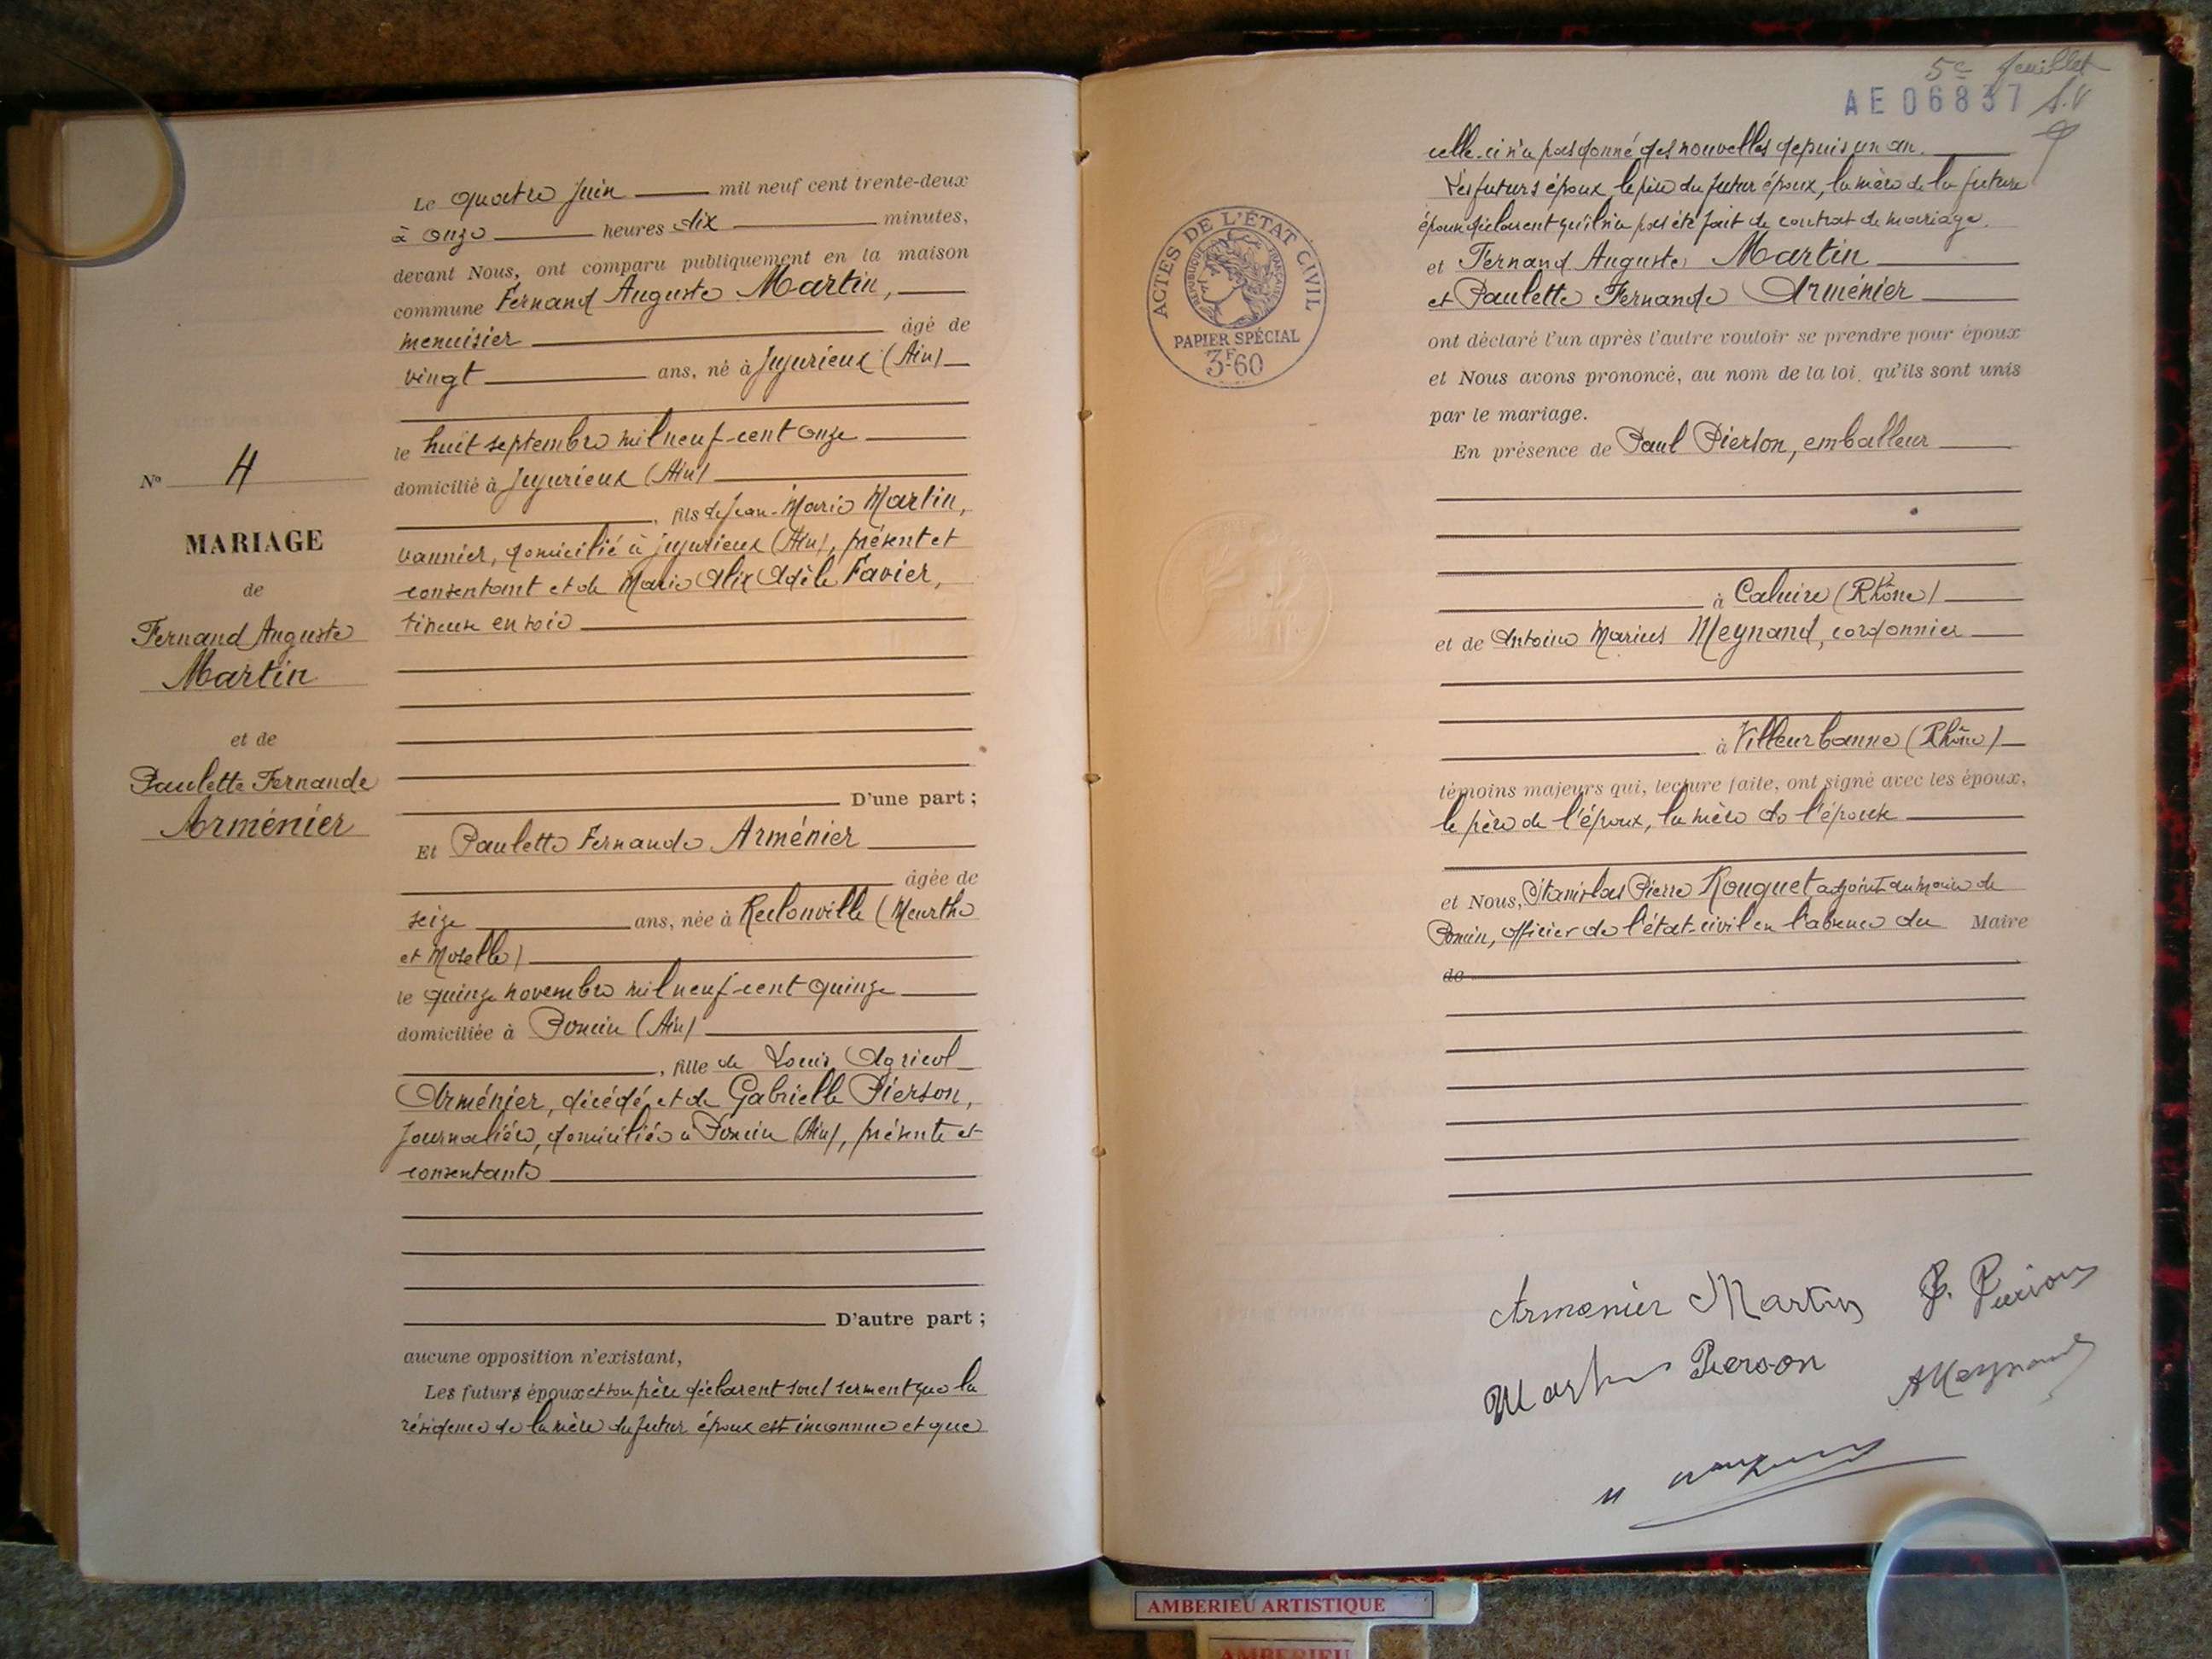 Le quatre Juin mil neuf cent trente-deux
à onze heures dix minutes,
devant Nous, ont comparu publiquement en la maison
commune Fernand Auguste Martin,
menuisier âgé de
vingt ans, né à Jujurieux (Ain)
le huit septembre mil neuf-cent onze
domicilié à Jujurieux (Ain)
, fils de Jean-Marie Martin,
vannier, domicilié à Jujurieux (Ain), présent et
consentant et de Marie Alix Adèle Favier,
tireuse en soie
D'une part ;
Et Paulette Fernande Arménier
âgée de
seize ans, née à (Meurthe
et Moselle)
le quinze novembre mil neuf-cent quinze
domiciliée à Poncin (Ain)
, fille de Louis Agricol
Arménier, décédé et de Gabrielle Pierson,
Journalière, domiciliée à Poncin (Ain), présente et
consentante
D'autre part ;
aucune opposition n'existant,
Les futurs époux et son père déclarent sous serment que la
résidence de la mère du futur époux est inconnue et que
N° 4
MARIAGE
de
Fernand Auguste
Martin
et de
Paulette Fernande
Arménier
5e feuillet
AE06837
celle-ci n'a pas donné des nouvelles depuis un an.
Les futurs époux, le père du futur époux, la mère de la future
épouse déclarent qu'il n'a pas été fait de contrat de mariage.
et Fernand Auguste Martin
et Paulette Fernande Arménier
ont déclaré l'un après l'autre vouloir se prendre pour époux
et Nous avons prononcé, au nom de la loi, qu'ils sont unis
par le mariage.
En présence de Paul Pierson, emballeur
à Caluire (Rhône)
et de Antoine Marius Meynand, cordonnier
à Villeurbanne (Rhône)
témoins majeurs qui, lecture faite, ont signé avec les époux,
le père de l'époux, la mère de l'épouse
et Nous, Stanislas Pierre Rouguet adjoint au maire de
Poncin, officier de l'état-civil en l'absence du Maire
de
ACTES DE L'ÉTAT CIVIL
RÉPUBLIQUE FRANÇAISE
PAPIER SPÉCIAL
3F60
Armenier Martin P. Pierson
Martin Pierson AMeynand
AMBERIEU ARTISTIQUE
AMBERIEU